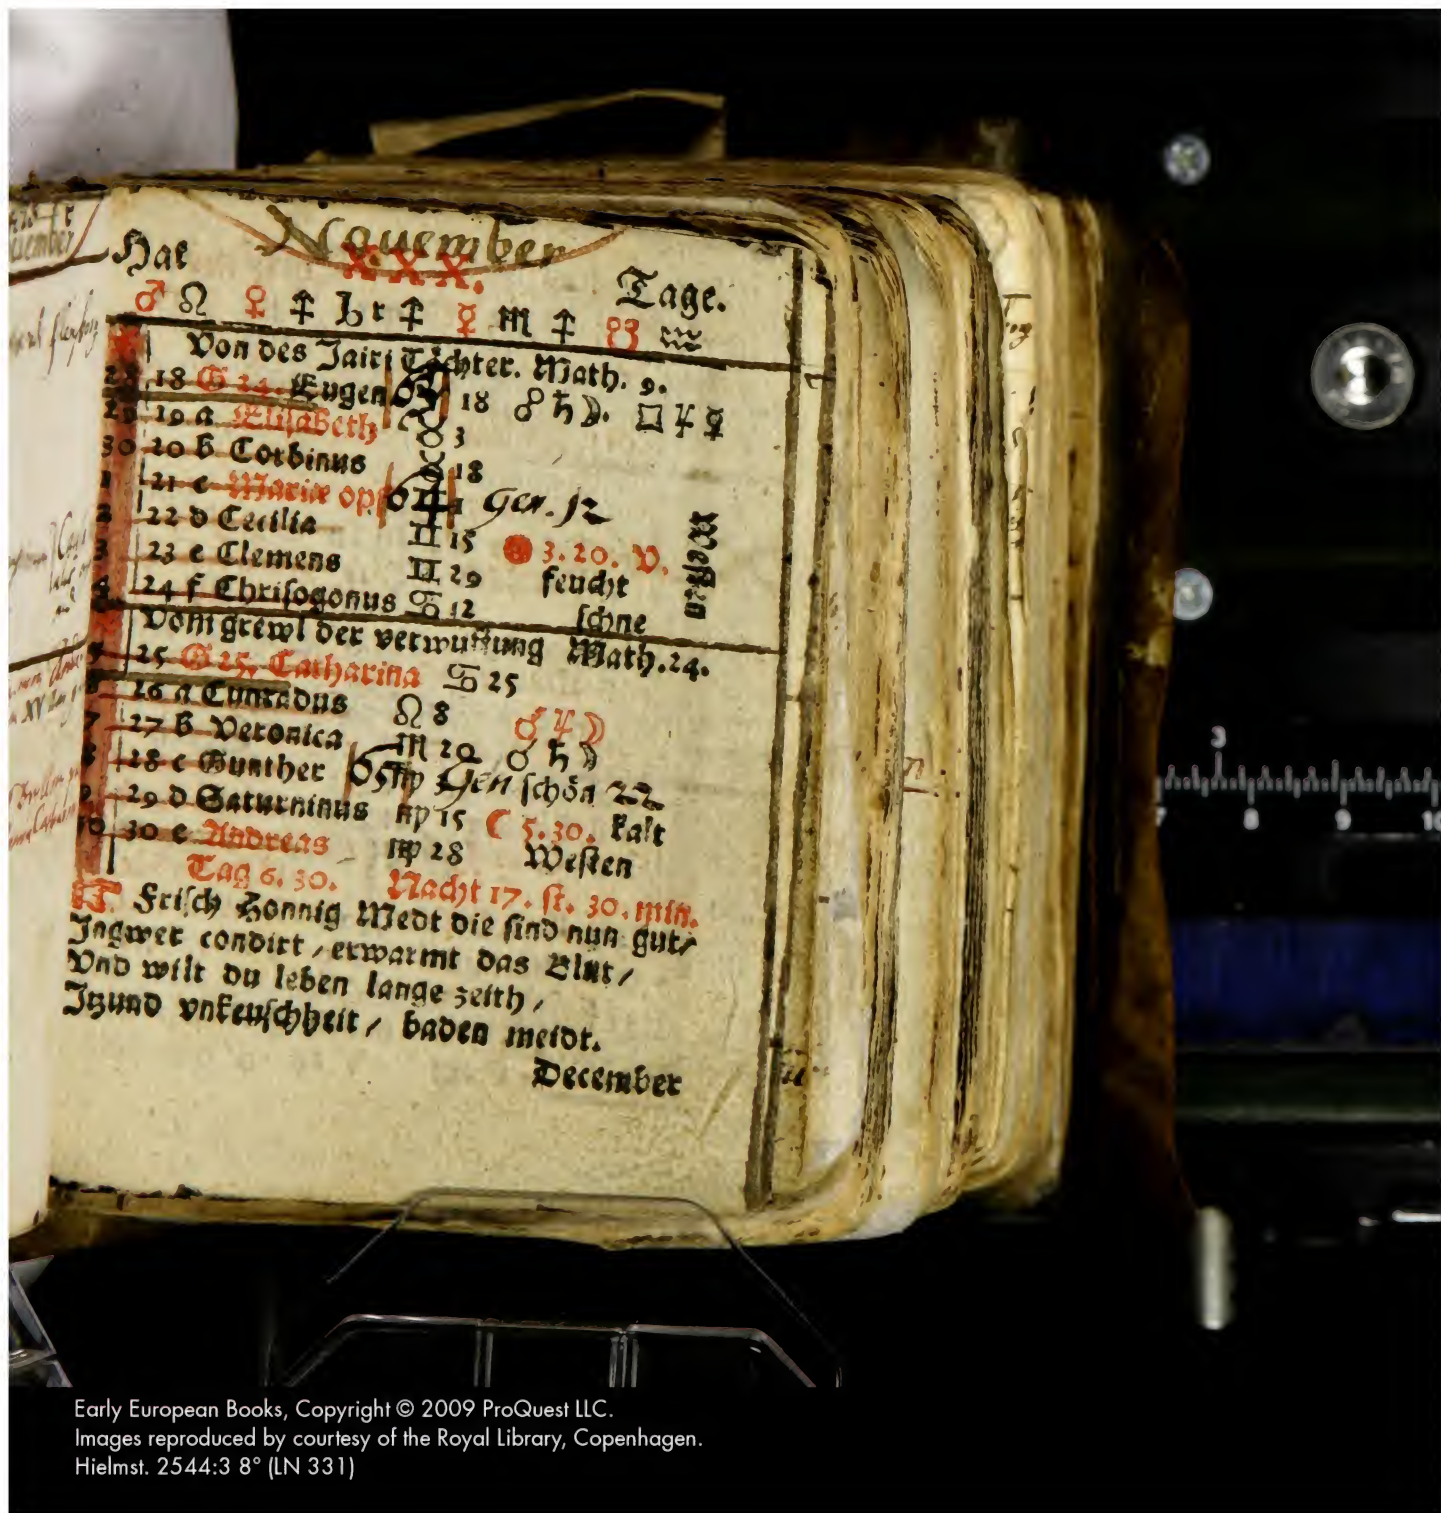 Nouember
Hat XXX. Tage.
♂ ♌ ♀ ♐ Jvr ♐ ☿ ♏ ♐ ☋ ♒
Von des Jairi Tochter. Math. 9.
28 18 G 24. Eugen 18 ☍ ♄ ☽. □ ♃ ☿
29 19 a Elisabeth ♉ 3
30 20 b Corbinus ♉ 18
1 21 c Mariæ opf ♊ 1 Gen. 12
2 22 d Cecilia ♊ 15 3. 20. V.
3 23 e Clemens ♊ 29 feucht
4 24 f Chrisogonus ♋ 12 schne
Vom grewl der verwustung Math. 24.
5 25 G 25. Catharina ♋ 25
6 26 a Cunradus ♌ 8 ♂ ♃ ☽
7 27 b Veronica 20 ♂ ♄ ☽
8 28 c Gunther schön 22
9 29 d Saturninus ♍ 15 ☾ 5. 30. kalt
10 30 e Andreas ♍ 28 Westen
Tag 6. 30. Nacht 17. st. 30. min.
Frisch Honnig Medt die sind nun gut/
Ingwer condirt / erwarmt das Blut /
Vnd wilt du leben lange zeith /
Itzund vnkeuschheit / baden meidt.
December
3
7 8 9 10
Early European Books, Copyright © 2009 ProQuest LLC.
Images reproduced by courtesy of the Royal Library, Copenhagen.
Hielmst. 2544:3 8° (LN 331)